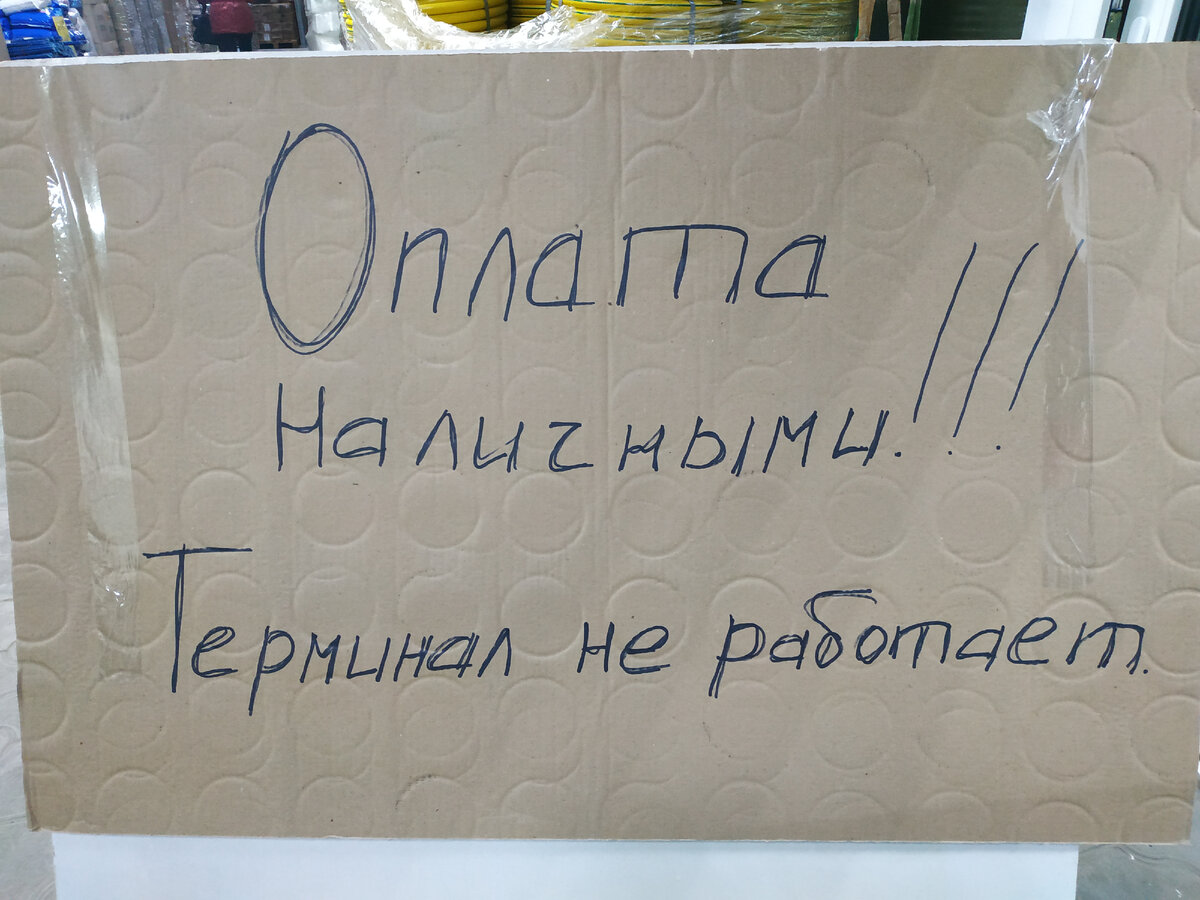 Оплата
Наличными!!!
Терминал не работает.